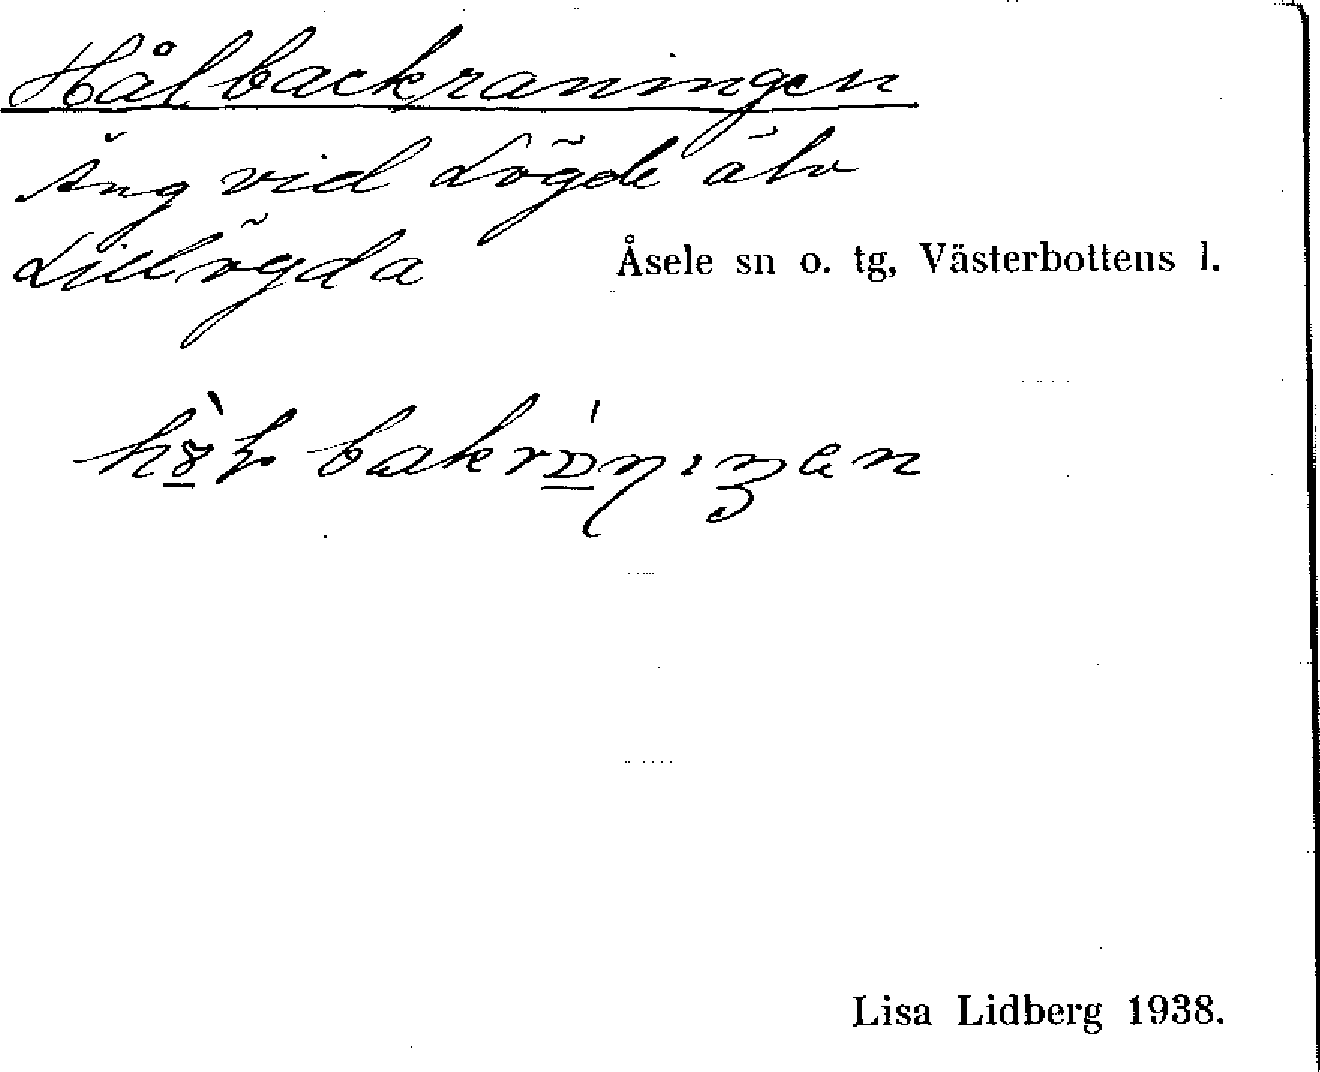 Hålbackraningen
Äng vid Lögde älv
Lillögda
Åsele sn o. tg, Västerbottens l.
Lisa Lidberg 1938.